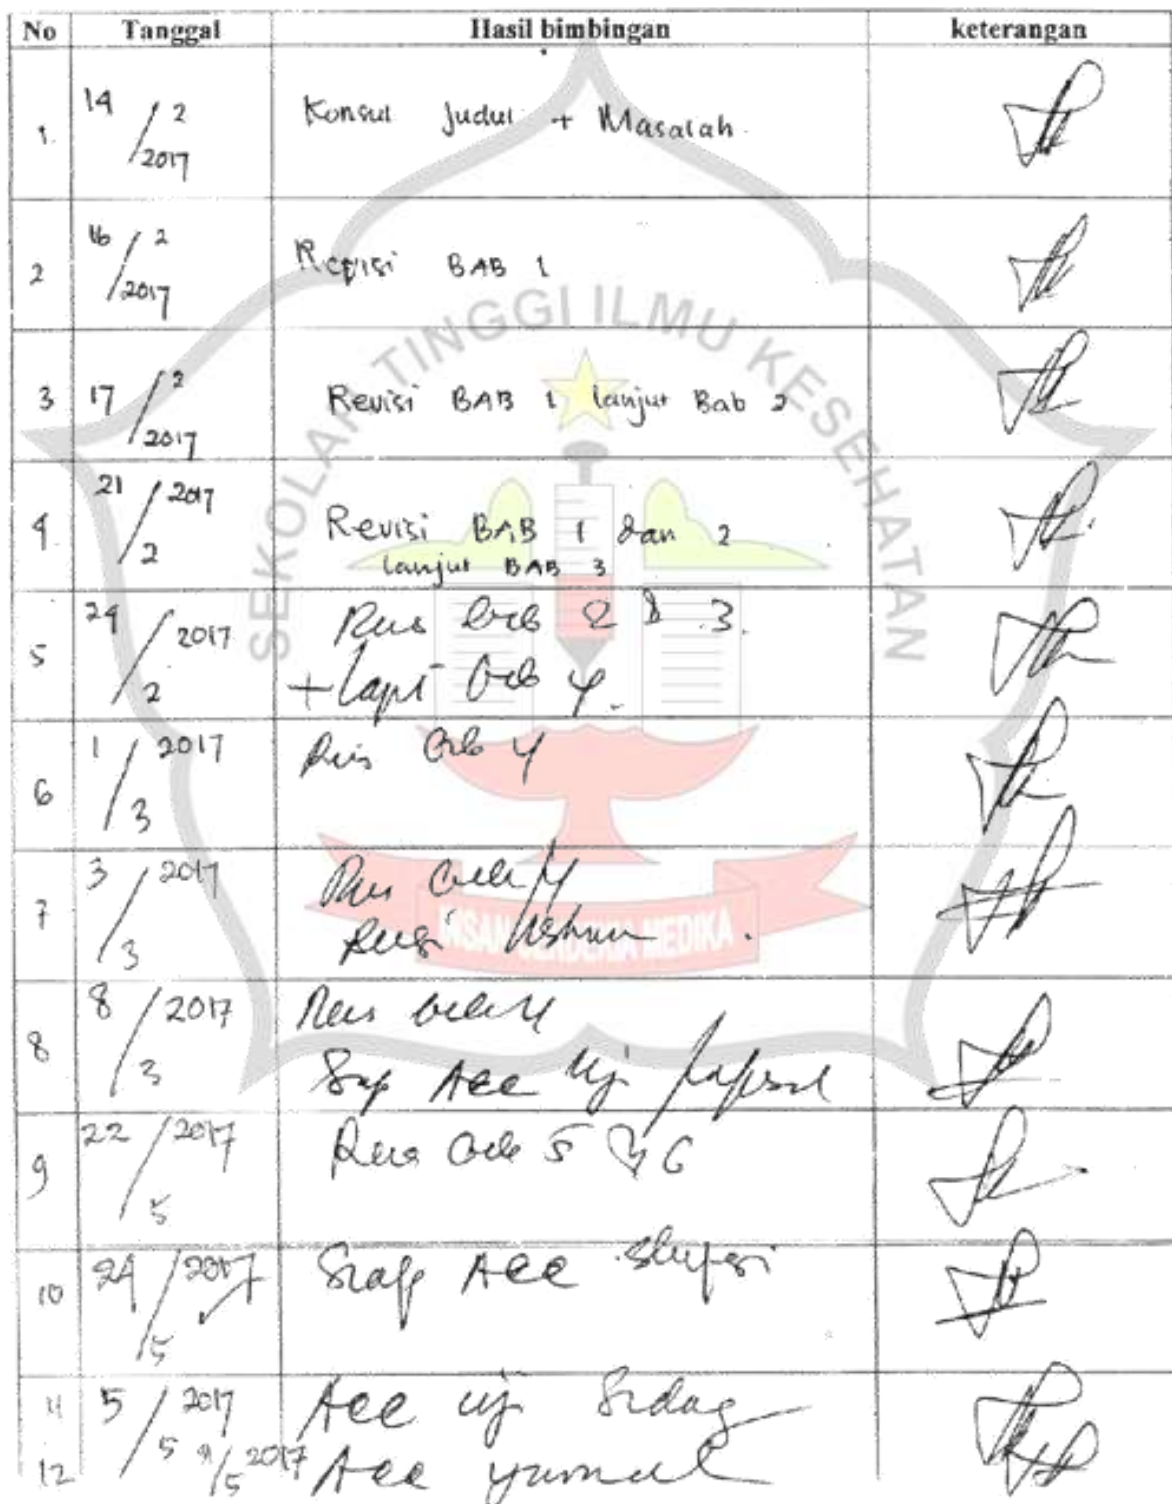 No Tanggal Hasil bimbingan keterangan
1. 14/2 2017 Konsul Judul + Masalah
2 16/2 2017 Revisi BAB 1
3 17/2 2017 Revisi BAB 1 lanjut Bab 2
4. 21/2 2017 Revisi BAB 1 dan 2
lanjut BAB 3
5 24/2 2017 bab 2 & 3.
+ bab 4.
6 1/3 2017 bab 4
7 3/3 2017 bab 4
8 8/3 2017 bab 4
Acc Uji
9 22/5 2017 bab 5 & 6
10 24/5 2017 Siap Acc skripsi
11 5/5 2017 Acc uji Sidang
12 /5 2017 Acc
SEKOLAH TINGGI ILMU KESEHATAN
INSAN CENDEKIA MEDIKA